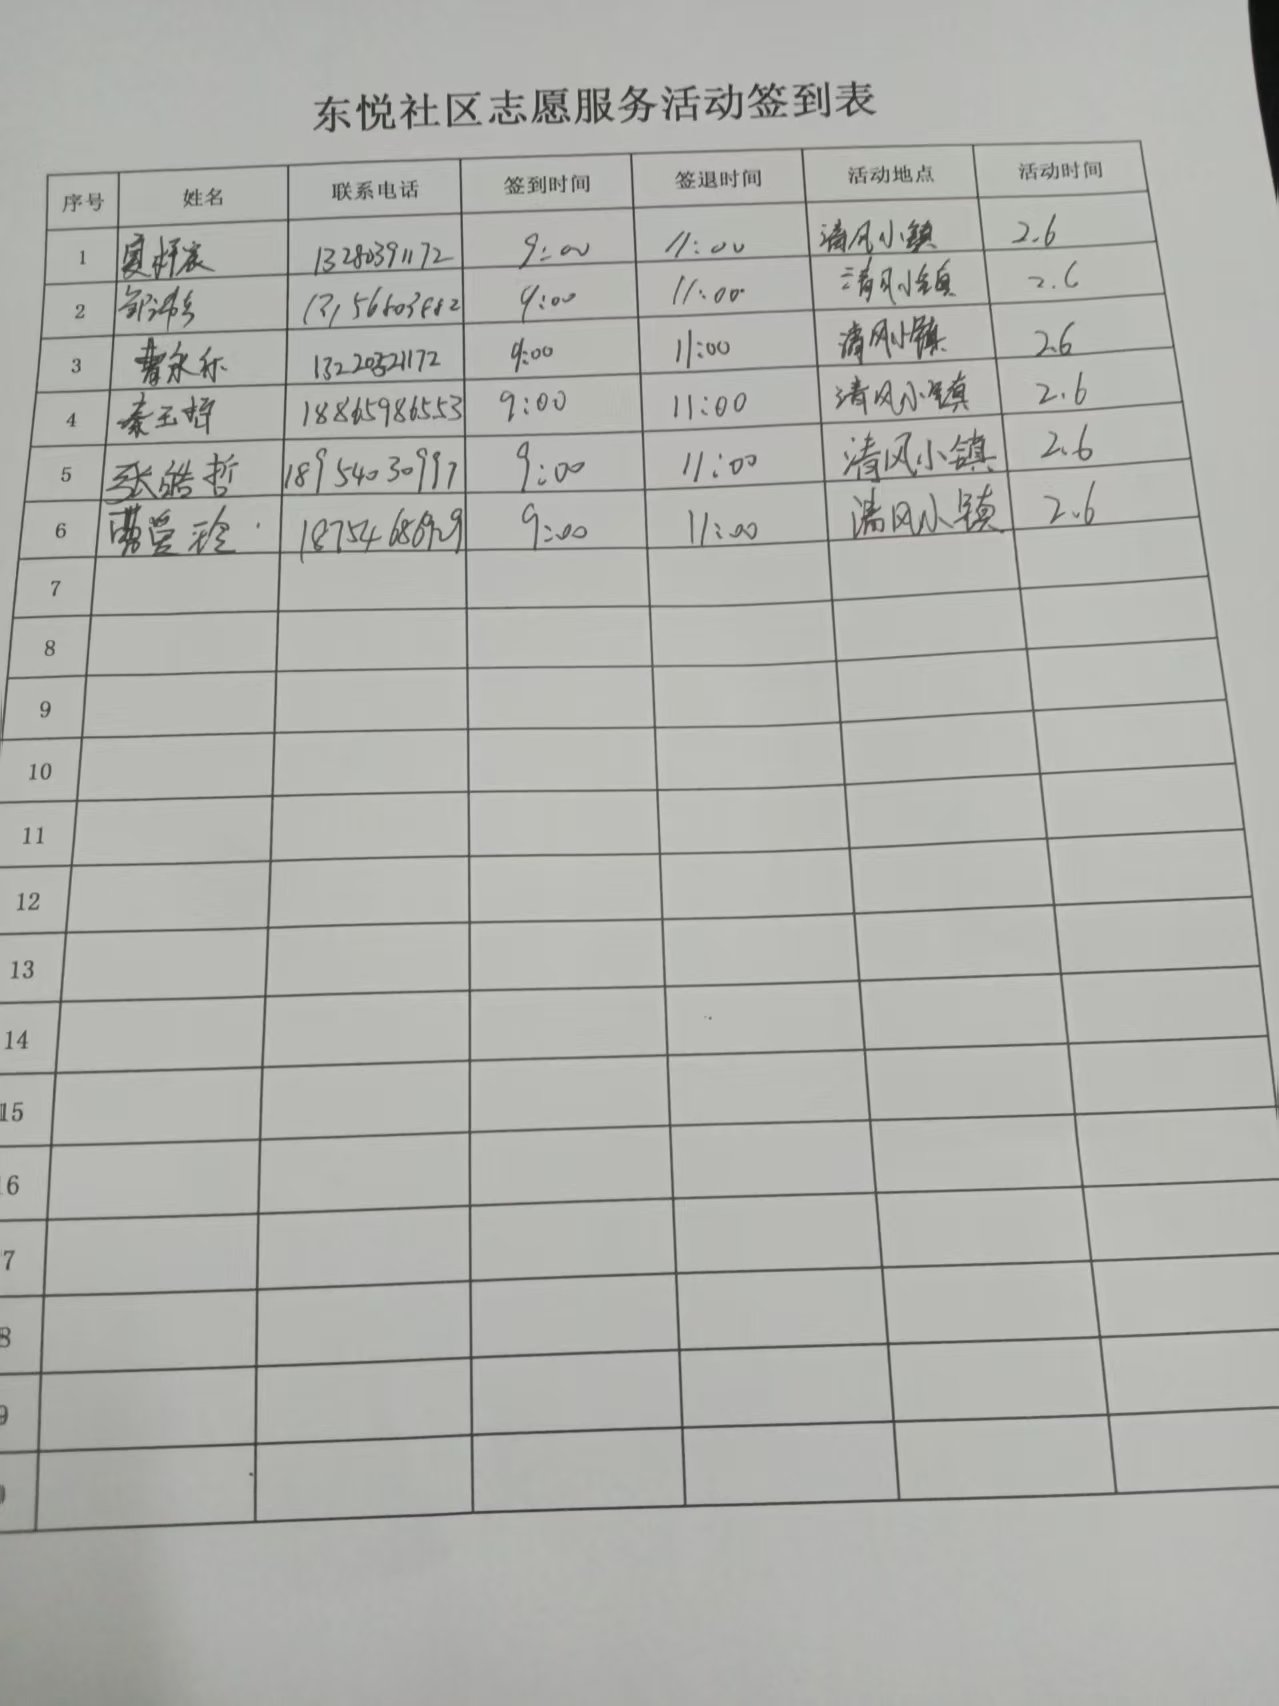 东悦社区志愿服务活动签到表
序号 姓名 联系电话 签到时间 签退时间 活动地点 活动时间
1 13280391172 9:00 11:00 清风小镇 2.6
2 9:00 11:00 清风小镇 2.6
3 曹永乐 13220321172 9:00 11:00 清风小镇 2.6
4 秦玉哲 18865986553 9:00 11:00 清风小镇 2.6
5 张皓哲 18954030997 9:00 11:00 清风小镇 2.6
6 9:00 11:00 清风小镇 2.6
7
8
9
10
11
12
13
14
15
6
7
8
9